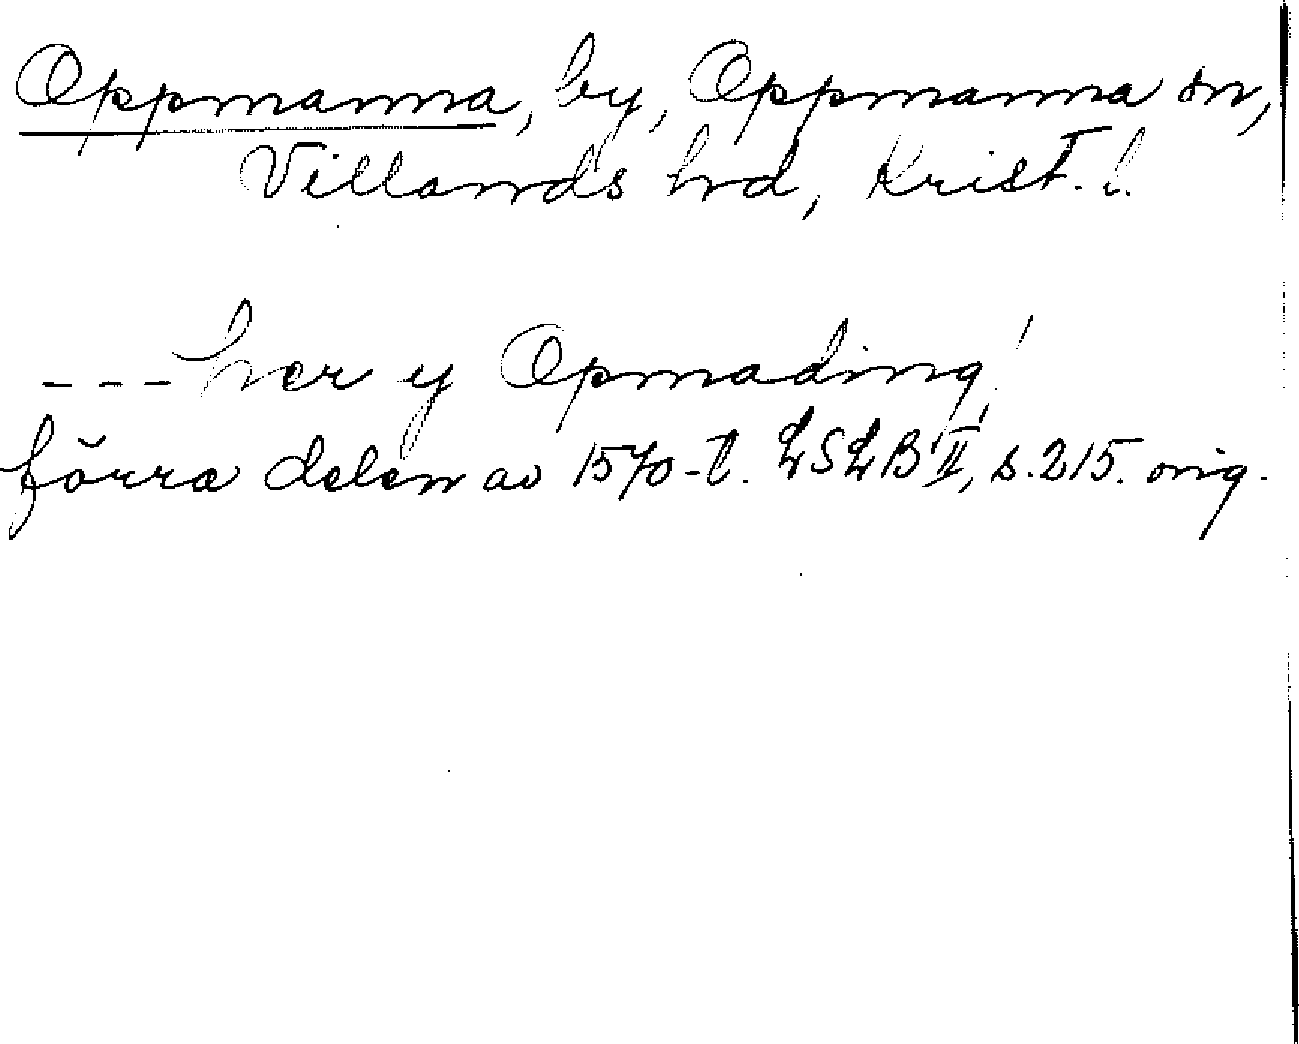 Oppmanna, by, Oppmanna sn,
Villands hrd, Krist. l.
--- her y Opmading!
förra delen av 1570-t. LSLB II, s. 215. orig.